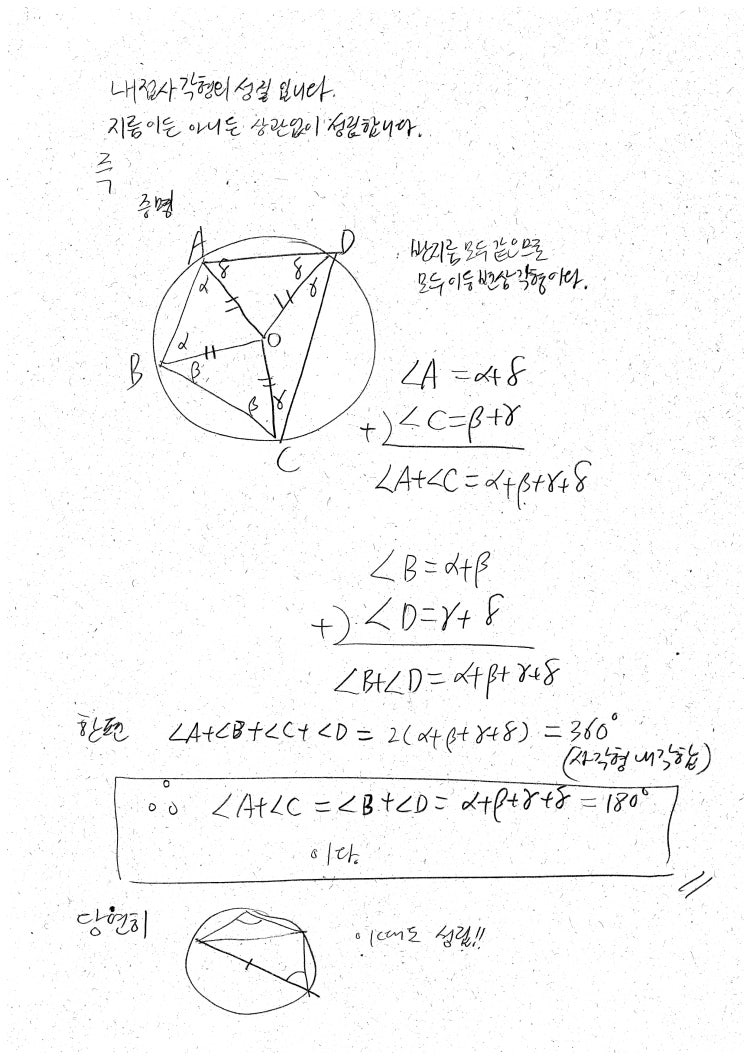 내접사각형의 성질 입니다.
지름이든 아니든 상관없이 성립합니다.
즉
증명
A
D
δ
δ
α
γ
O
α
B
β
β
γ
C
반지름 모두 같으므로
모두 이등변삼각형이다.
∠A = α+δ
+) ∠C = β+γ
∠A+∠C = α+β+γ+δ
∠B = α+β
+) ∠D = γ+δ
∠B+∠D = α+β+γ+δ
한편 ∠A+∠B+∠C+∠D = 2(α+β+γ+δ) = 360°
(사각형 내각합)
∴ ∠A+∠C = ∠B+∠D = α+β+γ+δ = 180°
이다.
당연히
이때도 성립!!